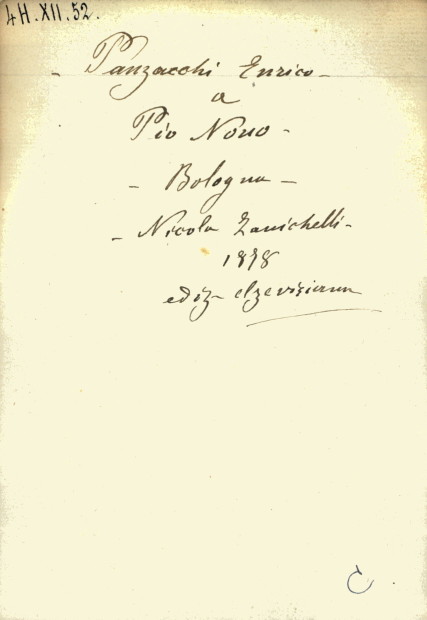 4H.XII.52.
- Panzacchi Enrico -
a
Pio Nono -
- Bologna -
- Nicola Zanichelli -
1878
ediz- elzeviriana
C